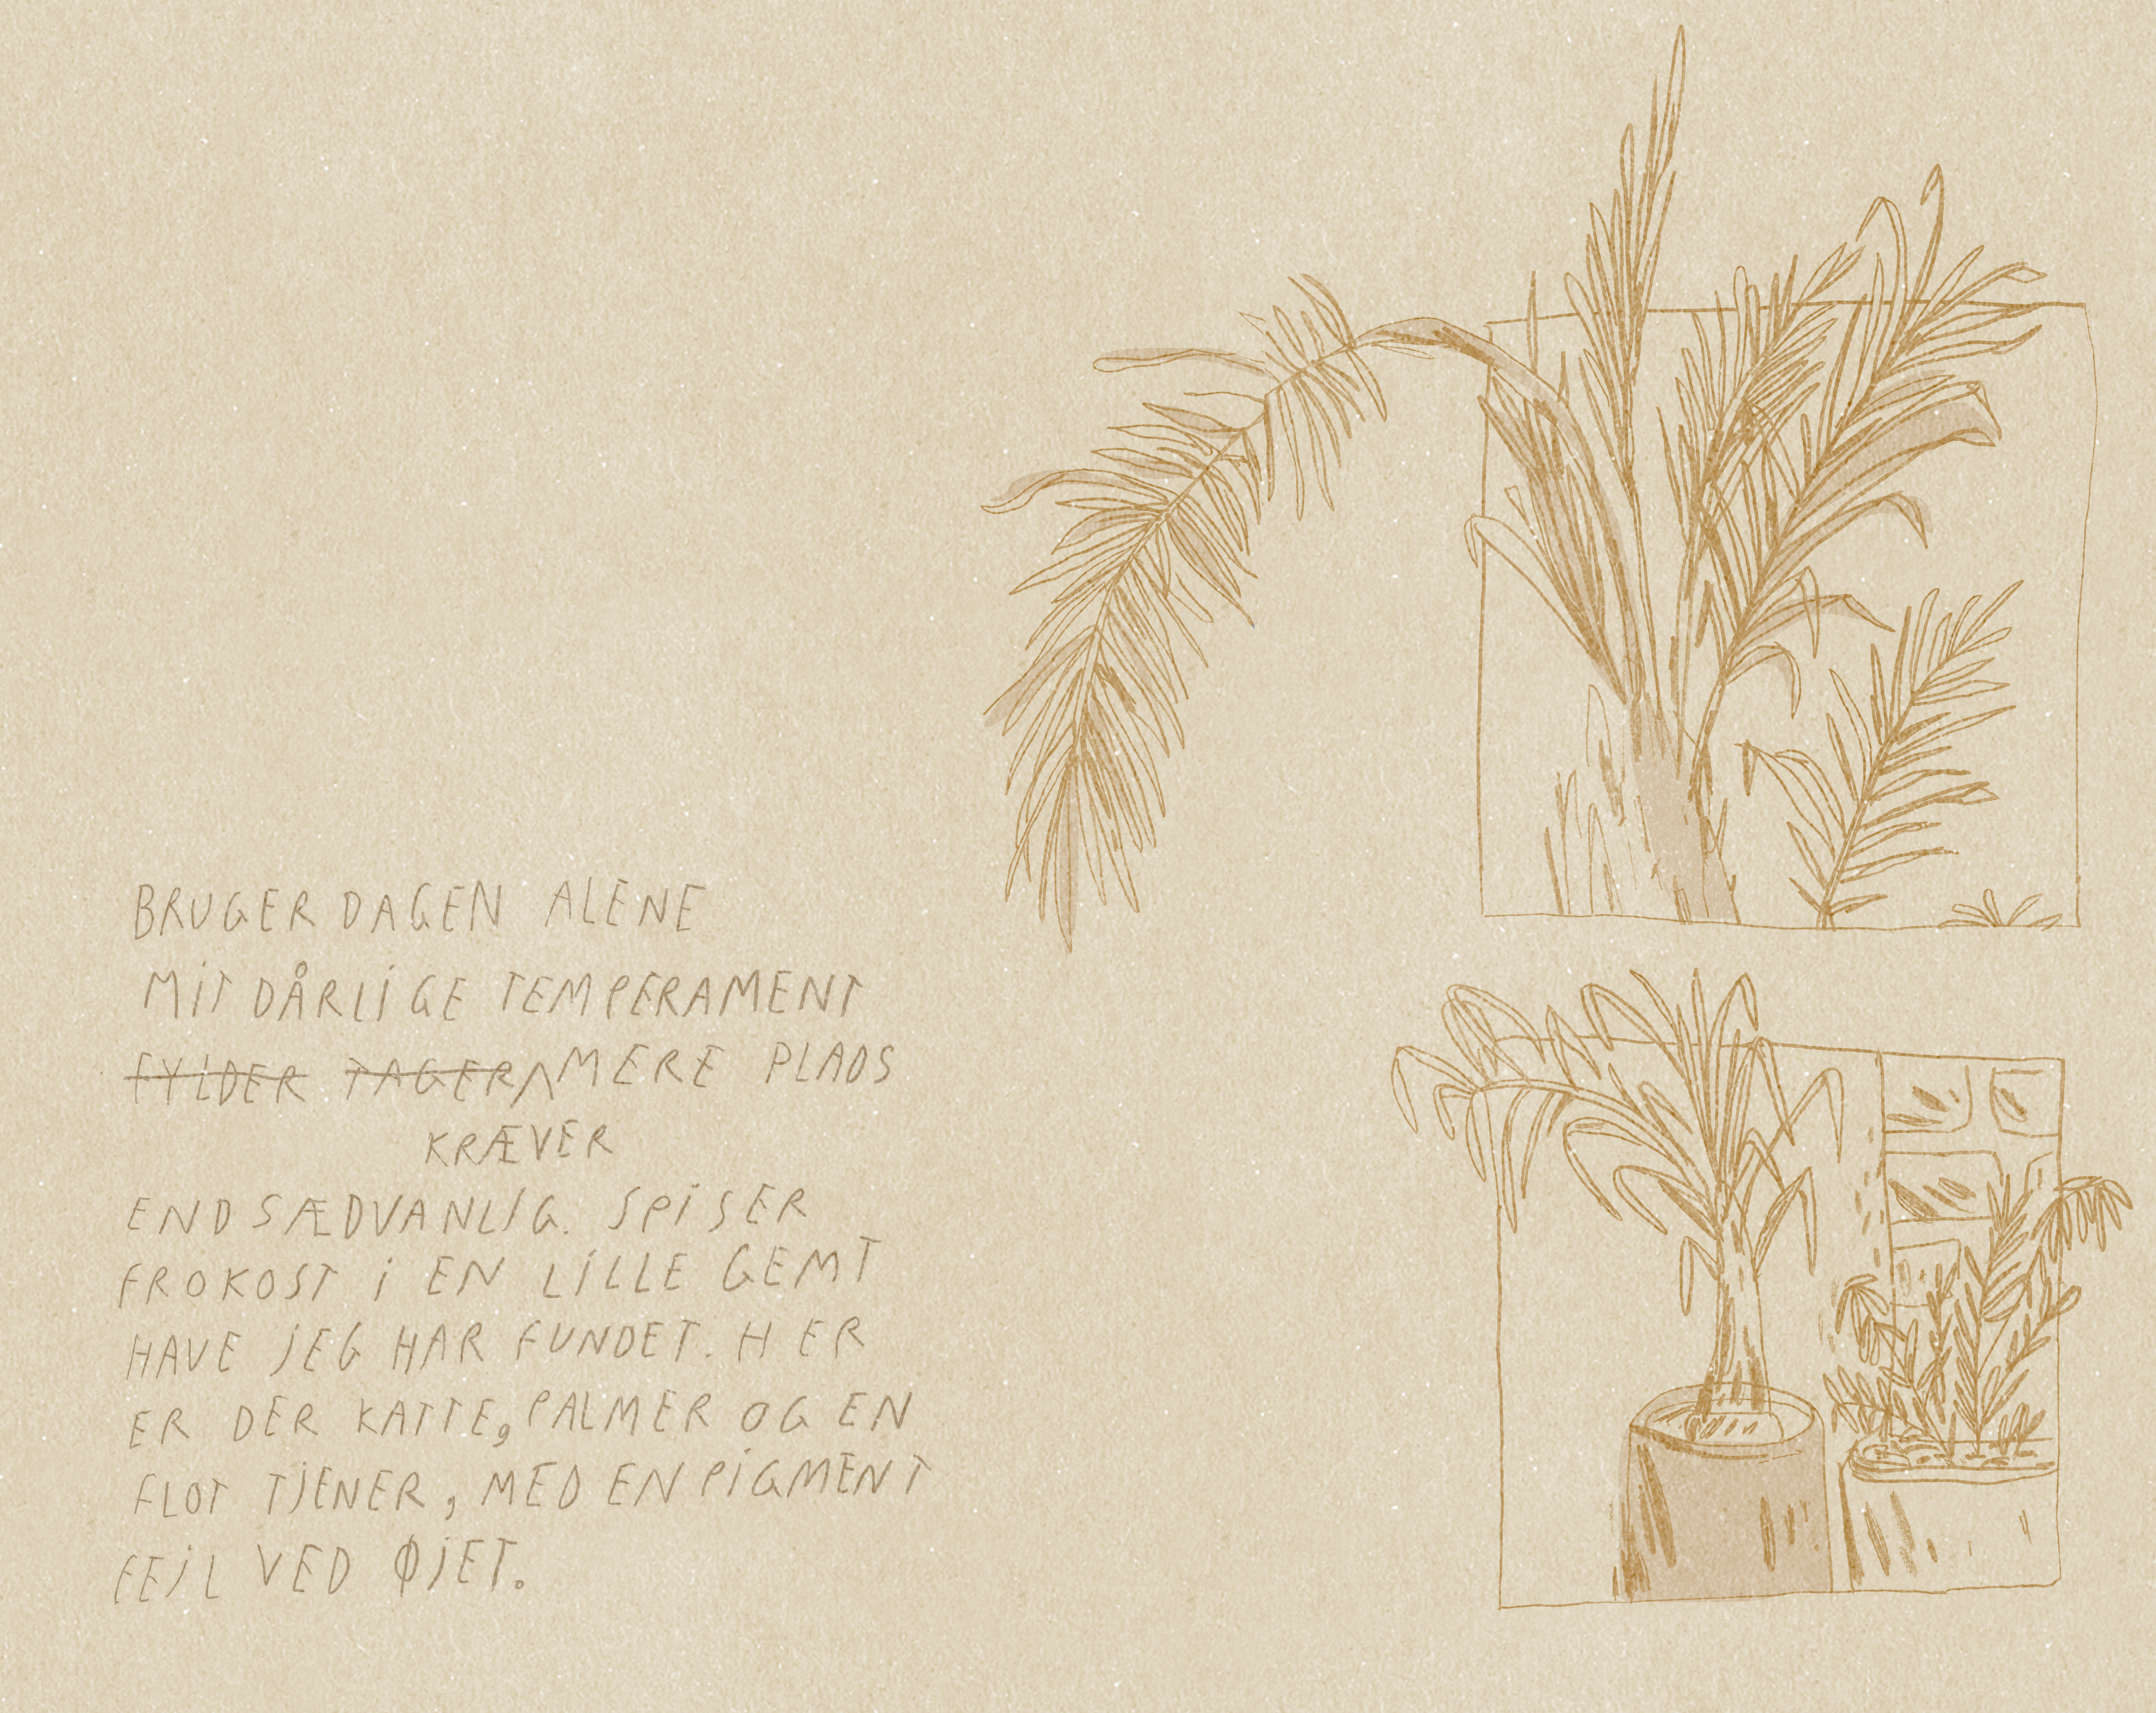 BRUGER DAGEN ALENE
MIT DÅRLIGE TEMPERAMENT
FYLDER TAGER MERE PLADS
KRÆVER
END SÆDVANLIG. SPISER
FROKOST I EN LILLE GEMT
HAVE JEG HAR FUNDET. HER
ER DER KATTE, PALMER OG EN
FLOT TJENER, MED EN PIGMENT
FEJL VED ØJET.